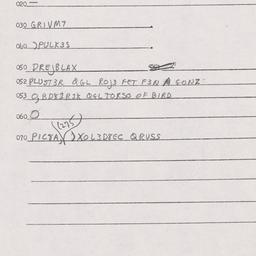 020 —
030 GRIVM7
040 JPULK3S
050 DREJBLAX
052 PLUST3R QGL ROJ3 FET F3N A GONZ
053 QL TORSO OF BIRD
060 O
(275)
070 PICTA XOL3D8EC QRUSS